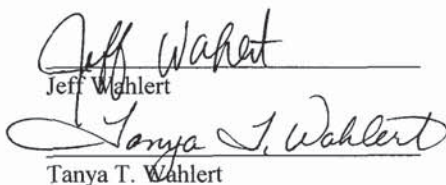 Jeff Wahlert
Jeff Wahlert
Tanya T. Wahlert
Tanya T. Wahlert